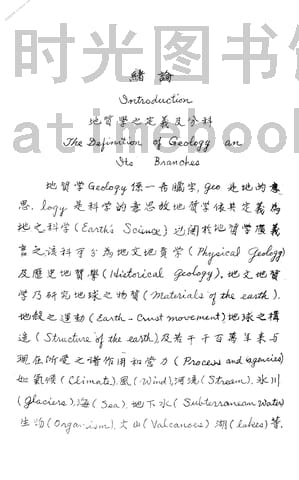 時光图书馆
緒論
Introduction
地質學之定義及分科
The Definition of Geology an
Its Branches
地質學Geology係一希臘字,geo 是地的意
思, logy是科學的意思故地質學依其定義為
地之科學(Earth's Science)过関於地質學廣義
言之該科可分為地文地質學(Physical Geology)
及歷史地質學(Historical Geology),地文地質
學乃研究地球之物質(Materials of the earth),
地殼之運動(Earth-Crust movement)地球之構
造(Structure of the earth)及若干千百萬年来与
現在所受之諸作用和營力(Process and agencies)
如氣候(Climate),風(Wind),河流(Stream),氷川
(Glaciers),海(Sea),地下水(Subterranean Water)
生物(Organism),火山(Valcanoes)湖(lakes)等,